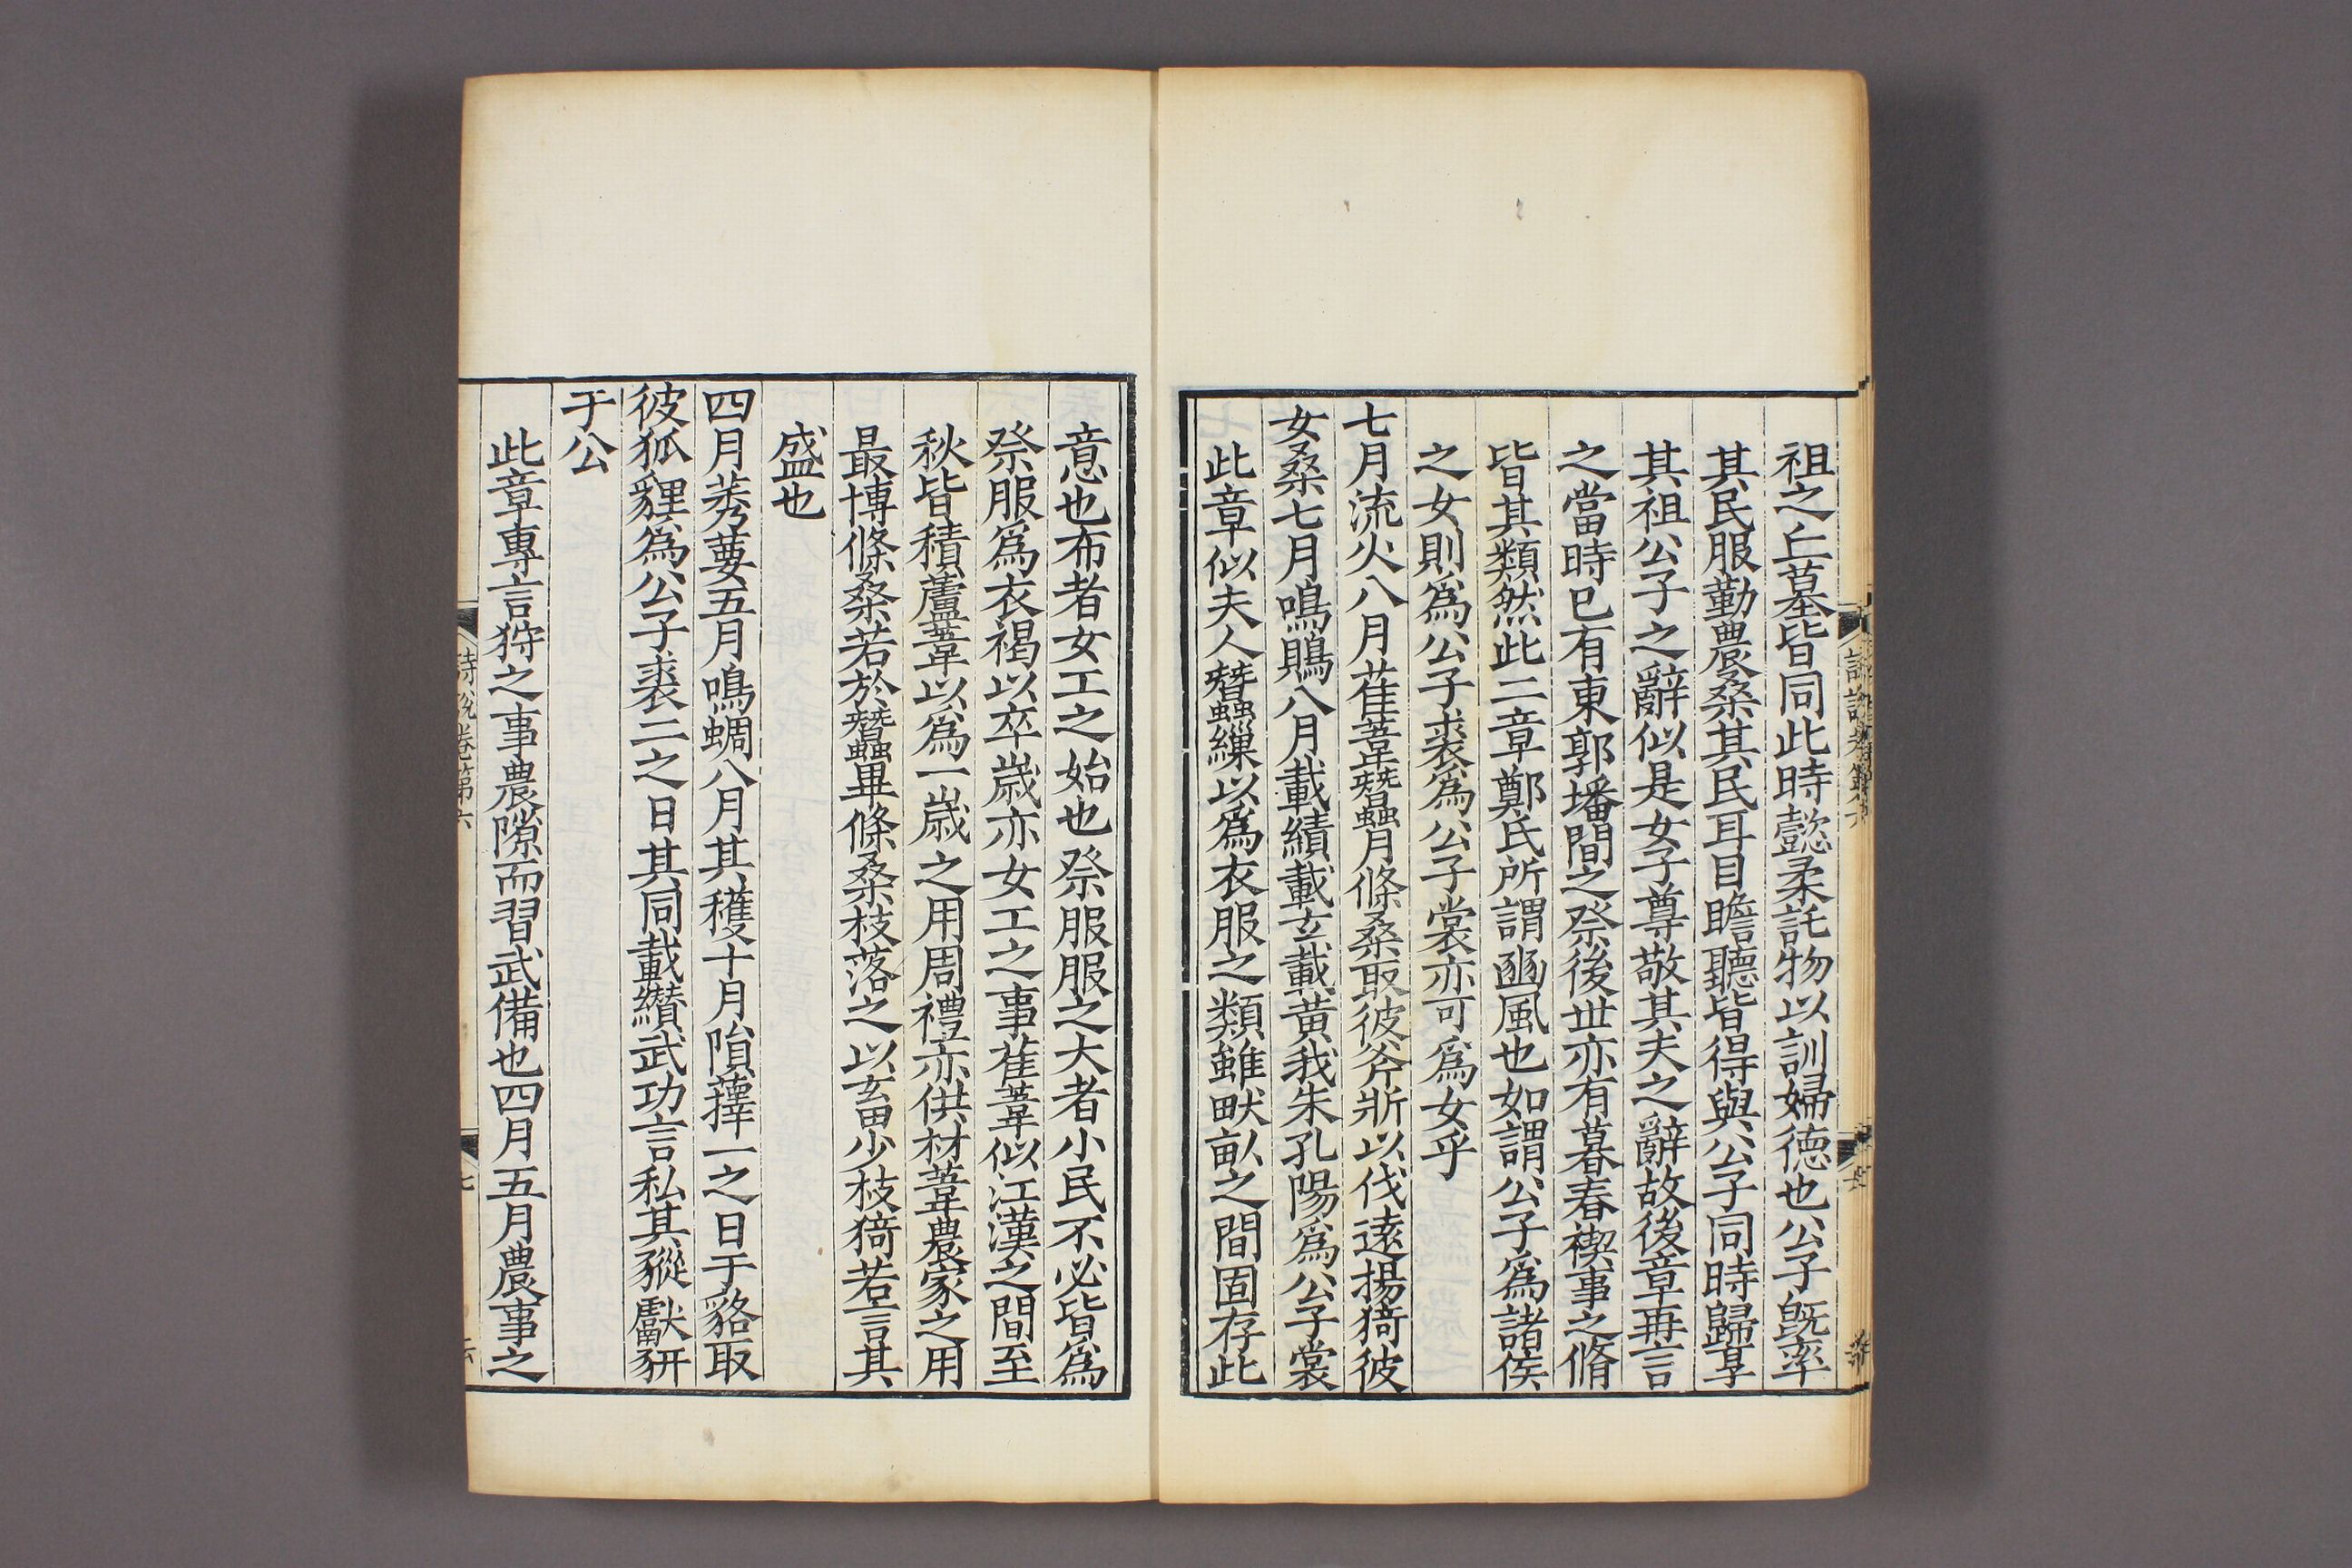 祖之丘墓皆同此時懿柔託物以訓婦德也公子旣率
其民服勤農桑其民耳目瞻聽皆得與公子同時歸享
其祖公子之辭似是女子尊敬其夫之辭故後章再言
之當時已有東郭墦間之祭後世亦有暮春禊事之脩
皆其類然此二章鄭氏所謂豳風也如謂公子爲諸侯
之女則爲公子裘爲公子裳亦可爲女乎
七月流火八月萑葦蠶月條桑取彼斧斨以伐遠揚猗彼
女桑七月鳴鵙八月載績載玄載黃我朱孔陽爲公子裳
此章似夫人蠶繅以爲衣服之類雖畎畝之間固存此
意也布者女工之始也祭服服之大者小民不必皆爲
祭服爲衣褐以卒歲亦女工之事萑葦似江漢之間至
秋皆積蘆葦以爲一歲之用周禮亦供材葦農家之用
最博條桑若於蠶畢條桑枝落之以畜少枝猗若言其
盛也
四月莠葽五月鳴蜩八月其穫十月隕蘀一之日于貉取
彼狐貍爲公子裘二之日其同載纘武功言私其豵獻豜
于公
此章專言狩之事農隙而習武備也四月五月農事之
詩說卷第六
七